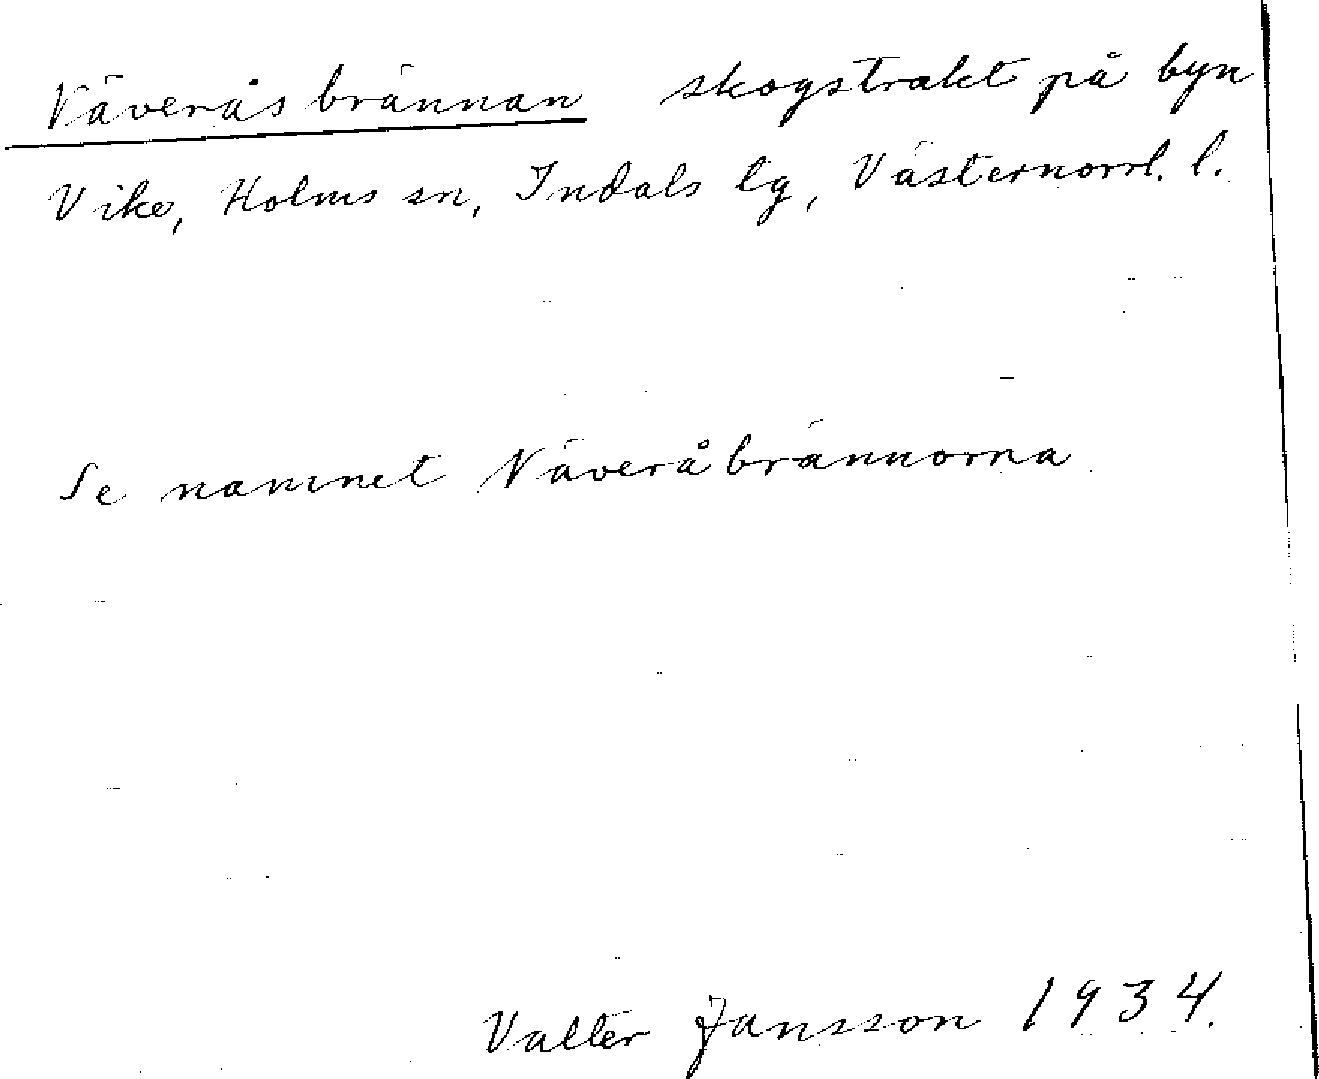 Näveråsbrännan skogstrakt på byn
Vike, Holms sn, Indals tg, Västernorrl. l.
Se namnet Näveråbrännorna
Valter Jansson 1934.